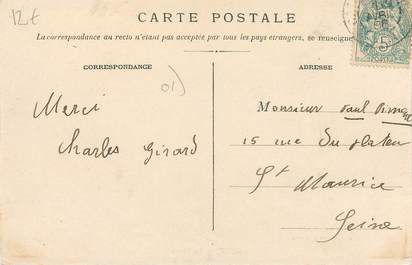 12€
CARTE POSTALE
La correspondance au recto n'étant pas acceptée par tous les pays étrangers, se renseigne
CORRESPONDANCE
ADRESSE
01)
Merci
Charles Girard
Monsieur Paul
15 rue du plateau
St Maurice
Seine
5c
POSTES